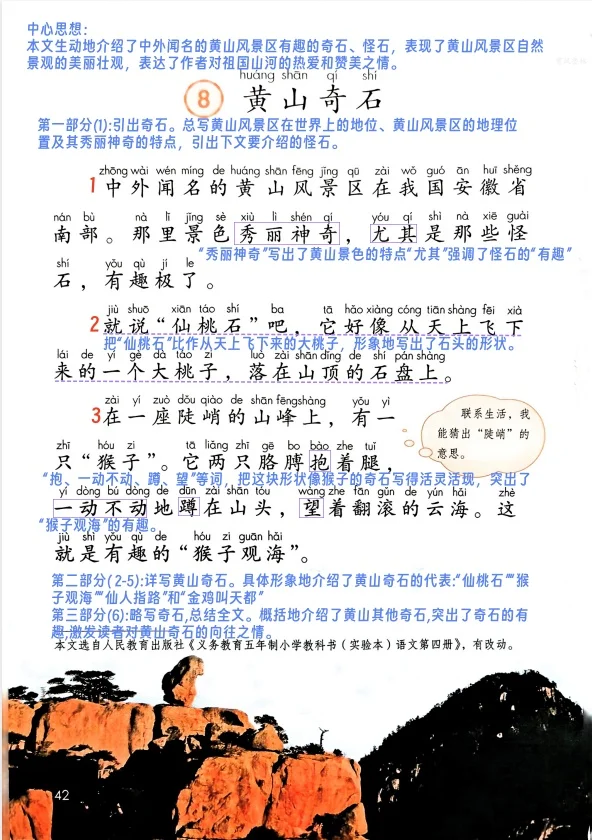 中心思想:
本文生动地介绍了中外闻名的黄山风景区有趣的奇石、怪石，表现了黄山风景区自然
景观的美丽壮观，表达了作者对祖国山河的热爱和赞美之情。
huáng shān qí shí
8 黄山奇石
第一部分(1):引出奇石。总写黄山风景区在世界上的地位、黄山风景区的地理位
置及其秀丽神奇的特点，引出下文要介绍的怪石。
zhōng wài wén míng de huáng shān fēng jǐng qū zài wǒ guó ān huī shěng
1 中外闻名的黄山风景区在我国安徽省
nán bù nà lǐ jǐng sè xiù lì shén qí yóu qí shì nà xiē guài
南部。那里景色秀丽神奇，尤其是那些怪
“秀丽神奇”写出了黄山景色的特点“尤其”强调了怪石的“有趣”
shí yǒu qù jí le
石，有趣极了。
jiù shuō xiān táo shí ba tā hǎo xiàng cóng tiān shàng fēi xià
2 就说“仙桃石”吧，它好像从天上飞下
把“仙桃石”比作从天上飞下来的大桃子，形象地写出了石头的形状。
lái de yí gè dà táo zi luò zài shān dǐng de shí pán shàng
来的一个大桃子，落在山顶的石盘上。
zài yí zuò dǒu qiào de shān fēng shàng yǒu yì
3 在一座陡峭的山峰上，有一
联系生活，我
能猜出“陡峭”的
意思。
zhī hóu zi tā liǎng zhī gē bo bào zhe tuǐ
只“猴子”。它两只胳膊抱着腿，
“抱、一动不动、蹲、望”等词，把这块形状像猴子的奇石写得活灵活现，突出了
yí dòng bú dòng de dūn zài shān tóu wàng zhe fān gǔn de yún hǎi zhè
一动不动地蹲在山头，望着翻滚的云海。这
“猴子观海”的有趣。
jiù shì yǒu qù de hóu zi guān hǎi
就是有趣的“猴子观海”。
第二部分(2-5):详写黄山奇石。具体形象地介绍了黄山奇石的代表:“仙桃石”“猴
子观海”“仙人指路”和“金鸡叫天都”
第三部分(6):略写奇石,总结全文。概括地介绍了黄山其他奇石,突出了奇石的有
趣,激发读者对黄山奇石的向往之情。
本文选自人民教育出版社《义务教育五年制小学教科书（实验本）语文第四册》，有改动。
42